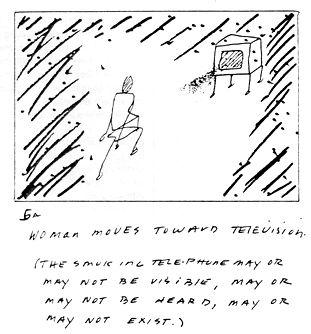 6a
WOMAN MOVES TOWARD TELEVISION.
(THE SMOKING TELEPHONE MAY OR
MAY NOT BE VISIBLE, MAY OR
MAY NOT BE HEARD, MAY OR
MAY NOT EXIST.)